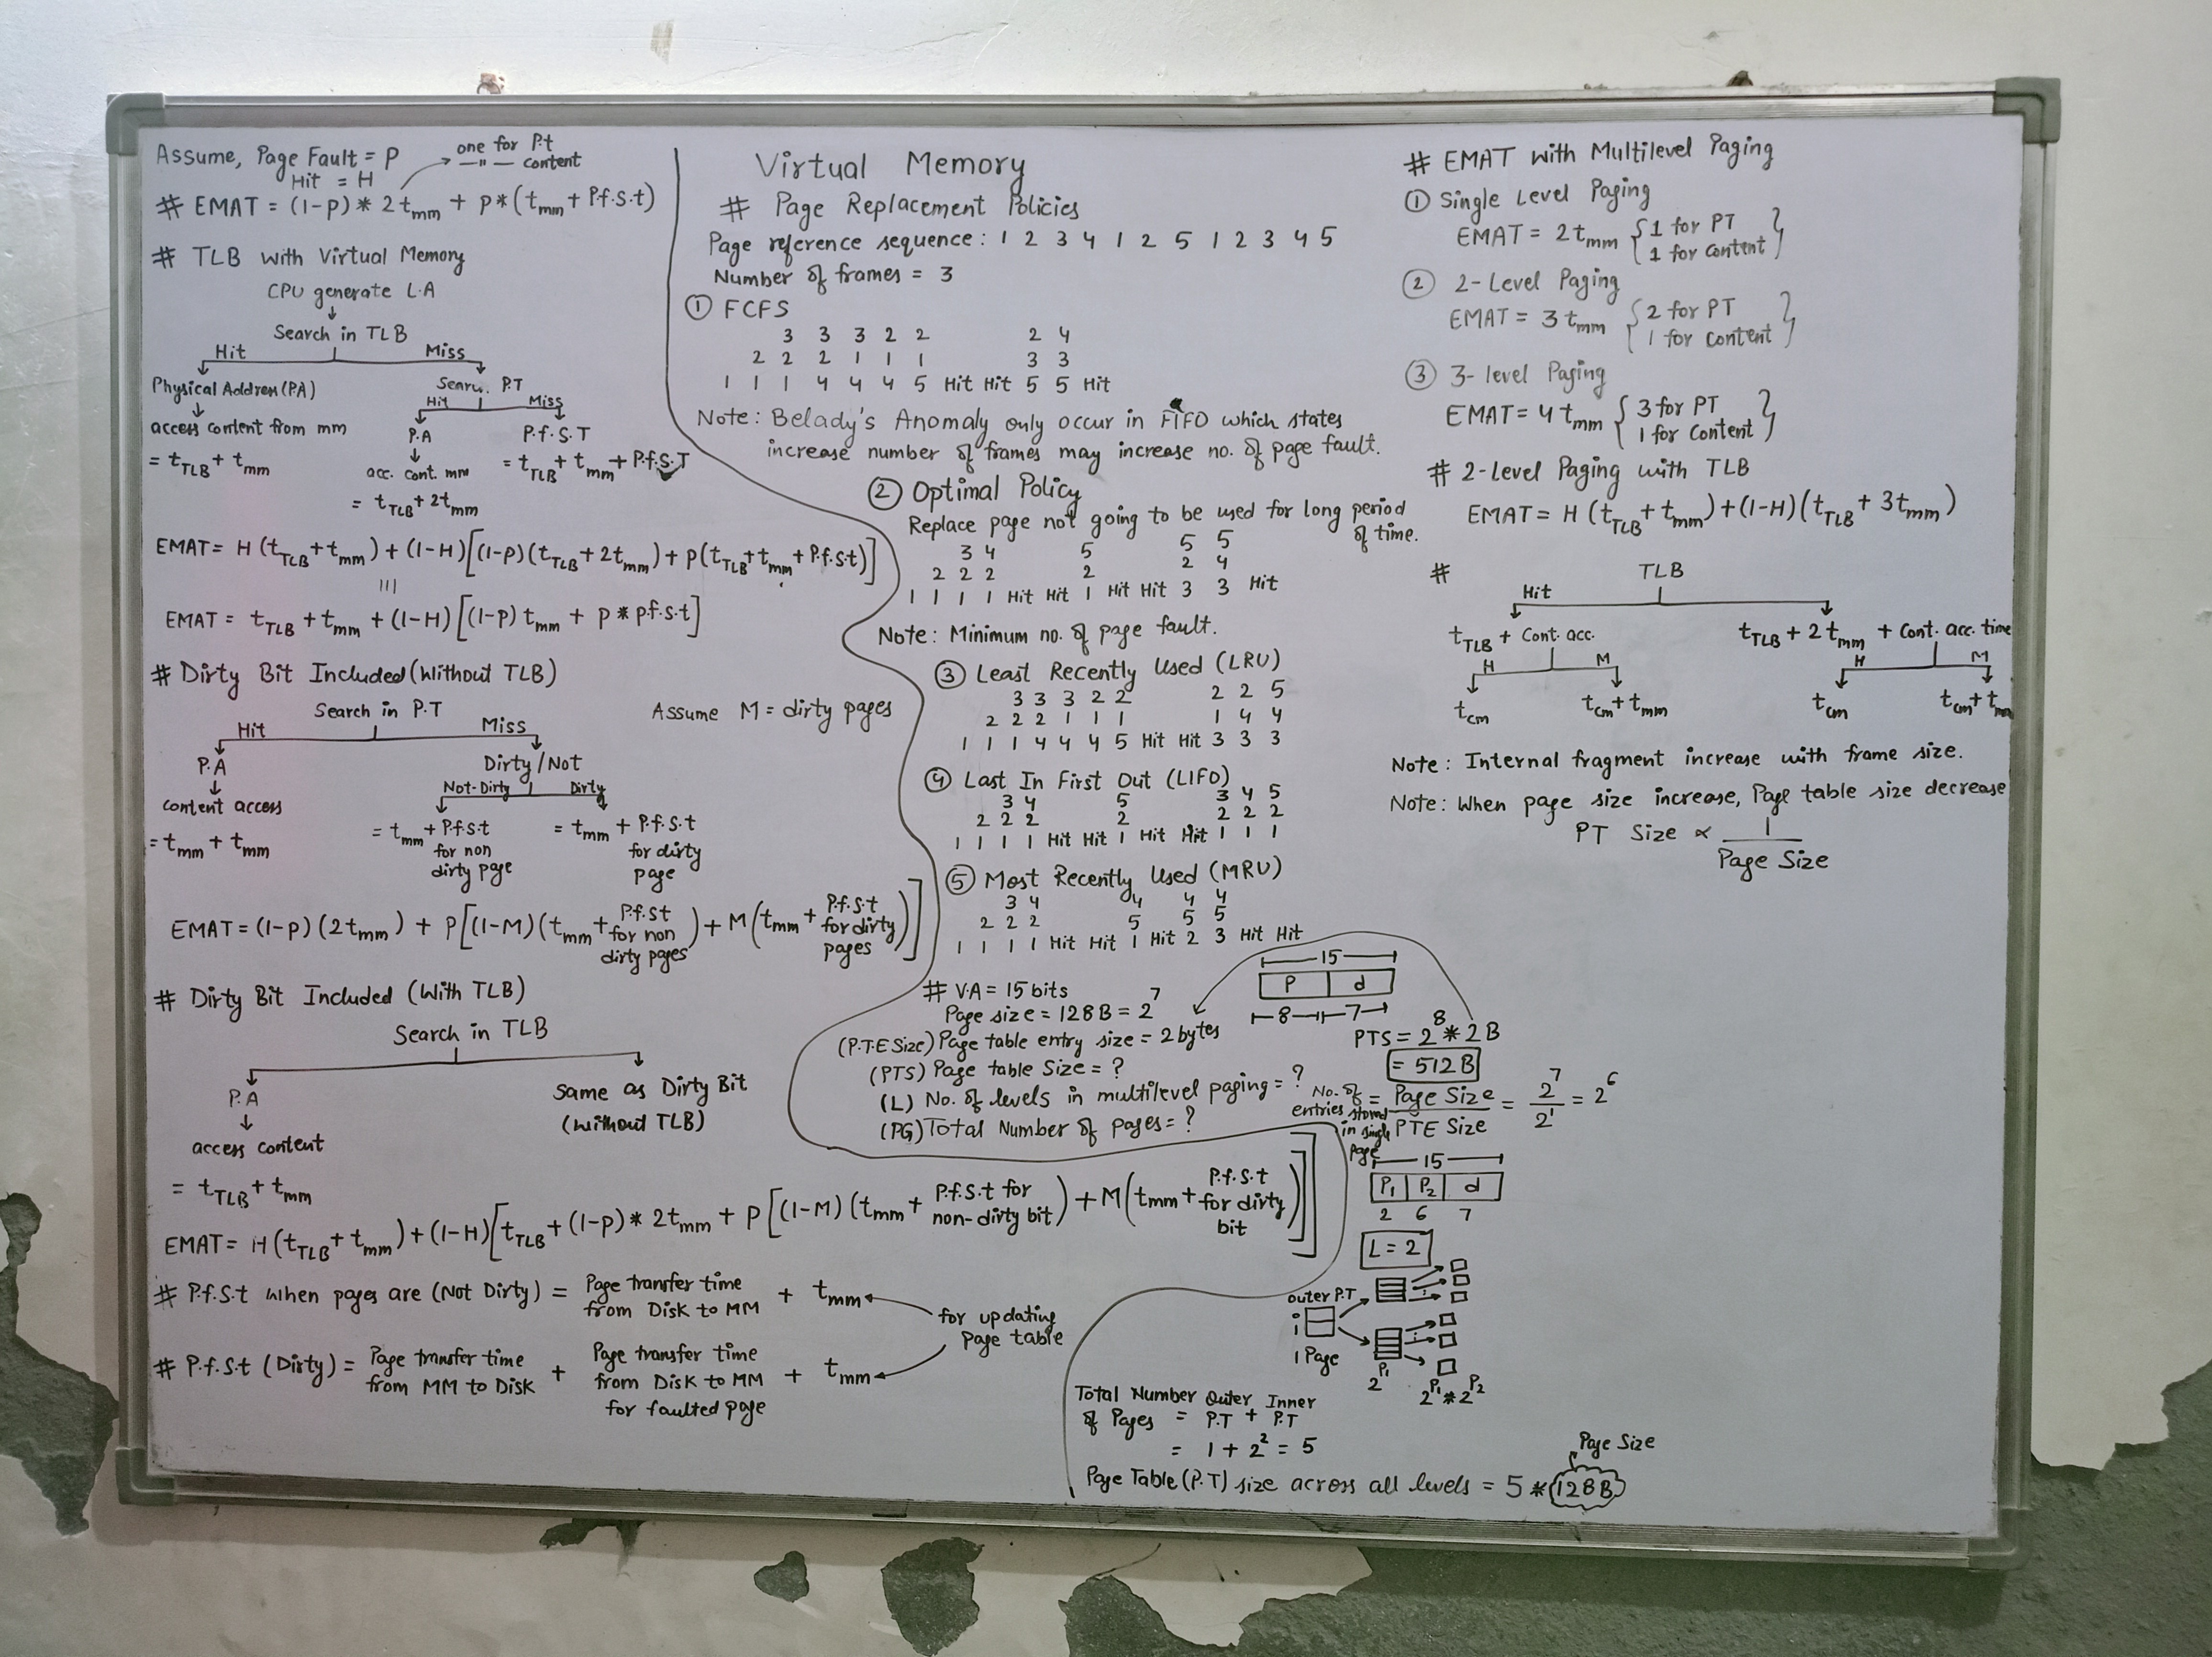 Assume, Page Fault = P
Hit = H
one for P.t
—"— content
# EMAT = (1-P) * 2tmm + P*(tmm + P.f.s.t)
# TLB with Virtual Memory
CPU generate L.A
Search in TLB
Hit Miss
Physical Address (PA)
access content from mm
= tTLB + tmm
Search P.T
Hit Miss
P.A
acc. cont. mm
= tTLB + 2tmm
P.f.S.T
= tTLB + tmm + P.f.S.T
EMAT = H (tTLB + tmm) + (1-H) [(1-P)(tTLB + 2tmm) + P(tTLB + tmm + P.f.s.t)]
|||
EMAT = tTLB + tmm + (1-H) [(1-P) tmm + P * P.f.s.t]
# Dirty Bit Included (Without TLB)
Assume M = dirty pages
Search in P.T
Hit Miss
P.A
content access
= tmm + tmm
Dirty/Not
Not-Dirty Dirty
= tmm + P.f.s.t
for non
dirty page
= tmm + P.f.s.t
for dirty
page
EMAT = (1-P) (2tmm) + P [(1-M) (tmm + P.f.s.t for non dirty pages) + M (tmm + P.f.s.t for dirty pages)]
# Dirty Bit Included (With TLB)
Search in TLB
P.A
access content
= tTLB + tmm
Same as Dirty Bit
(Without TLB)
EMAT = H (tTLB + tmm) + (1-H) [tTLB + (1-P) * 2tmm + P [(1-M) (tmm + P.f.s.t for non-dirty bit) + M (tmm + P.f.s.t for dirty bit)]]
# P.f.s.t when pages are (Not Dirty) = Page transfer time from Disk to MM + tmm
# P.f.s.t (Dirty) = Page transfer time from MM to Disk + Page transfer time from Disk to MM for faulted page + tmm
for updating
page table
Virtual Memory
# Page Replacement Policies
Page reference sequence: 1 2 3 4 1 2 5 1 2 3 4 5
Number of frames = 3
① FCFS
3 3 3 2 2 2 4
2 2 2 1 1 1 3 3
1 1 1 4 4 4 5 Hit Hit 5 5 Hit
Note: Belady's Anomaly only occur in FIFO which states
increase number of frames may increase no. of page fault.
② Optimal Policy
Replace page not going to be used for long period
of time.
3 4 5 5 5
2 2 2 2 2 4
1 1 1 1 Hit Hit 1 Hit Hit 3 3 Hit
Note: Minimum no. of page fault.
③ Least Recently Used (LRU)
3 3 3 2 2 2 2 5
2 2 2 1 1 1 1 4 4
1 1 1 4 4 4 5 Hit Hit 3 3 3
④ Last In First Out (LIFO)
3 4 5 3 4 5
2 2 2 2 2 2 2
1 1 1 1 Hit Hit 1 Hit Hit 1 1 1
⑤ Most Recently Used (MRU)
3 4 4 4 4
2 2 2 5 5 5
1 1 1 1 Hit Hit 1 Hit 2 3 Hit Hit
# V.A = 15 bits
Page size = 128B = 2^7
(P.T.E Size) Page table entry size = 2 bytes
(PTS) Page table Size = ?
(L) No. of levels in multilevel paging = ?
(PG) Total Number of pages = ?
15
P d
8 7
PTS = 2^8 * 2 B
= 512 B
No. of entries stored in single page = Page Size / PTE Size = 2^7 / 2^1 = 2^6
15
P1 P2 d
2 6 7
L = 2
outer P.T
1 Page
2^P1
2^P1 * 2^P2
Total Number of Pages = Outer P.T + Inner P.T
= 1 + 2^2 = 5
Page Size
Page Table (P.T) size across all levels = 5 * 128B
# EMAT with Multilevel Paging
① Single Level Paging
EMAT = 2tmm { 1 for PT
1 for content }
② 2-Level Paging
EMAT = 3tmm { 2 for PT
1 for content }
③ 3-level Paging
EMAT = 4tmm { 3 for PT
1 for content }
# 2-Level Paging with TLB
EMAT = H (tTLB + tmm) + (1-H) (tTLB + 3tmm)
# TLB
Hit
tTLB + Cont. acc.
H M
tcm tcm + tmm
tTLB + 2tmm + Cont. acc. time
H M
tcm tcm + tmm
Note: Internal fragment increase with frame size.
Note: When page size increase, Page table size decrease
PT Size ∝ 1 / Page Size